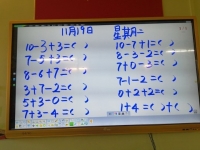 11月19日 星期二
10-3+3=( ) 10-7+1=( )
7-5+3=( ) 8-3-2=( )
8-6+7=( ) 7+0-3=( )
3+7-2=( ) 7-1-2=( )
5+3-0=( ) 0+2+2=( )
7+3-4=( ) 1+4=( )+( )